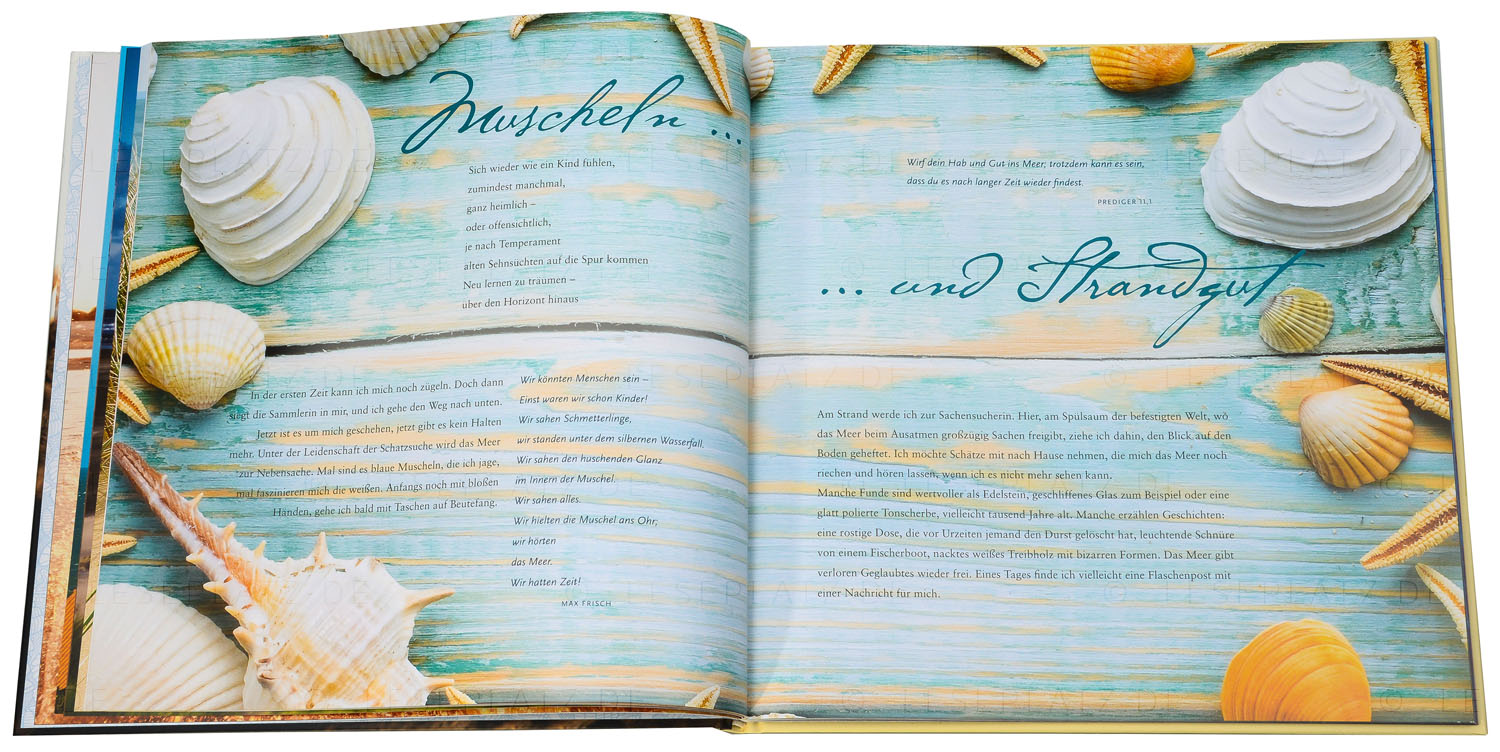 Muscheln ...
Sich wieder wie ein Kind fühlen,
zumindest manchmal,
ganz heimlich –
oder offensichtlich,
je nach Temperament
alten Sehnsüchten auf die Spur kommen
Neu lernen zu träumen –
über den Horizont hinaus
In der ersten Zeit kann ich mich noch zügeln. Doch dann
siegt die Sammlerin in mir, und ich gehe den Weg nach unten.
Jetzt ist es um mich geschehen, jetzt gibt es kein Halten
mehr. Unter der Leidenschaft der Schatzsuche wird das Meer
zur Nebensache. Mal sind es blaue Muscheln, die ich jage,
mal faszinieren mich die weißen. Anfangs noch mit bloßen
Händen, gehe ich bald mit Taschen auf Beutefang.
Wir könnten Menschen sein –
Einst waren wir schon Kinder!
Wir sahen Schmetterlinge,
wir standen unter dem silbernen Wasserfall.
Wir sahen den huschenden Glanz
im Innern der Muschel.
Wir sahen alles.
Wir hielten die Muschel ans Ohr;
wir hörten
das Meer.
Wir hatten Zeit!
MAX FRISCH
Wirf dein Hab und Gut ins Meer; trotzdem kann es sein,
dass du es nach langer Zeit wieder findest.
PREDIGER 11,1
... und Strandgut
Am Strand werde ich zur Sachensucherin. Hier, am Spülsaum der befestigten Welt, wo
das Meer beim Ausatmen großzügig Sachen freigibt, ziehe ich dahin, den Blick auf den
Boden geheftet. Ich möchte Schätze mit nach Hause nehmen, die mich das Meer noch
riechen und hören lassen, wenn ich es nicht mehr sehen kann.
Manche Funde sind wertvoller als Edelstein, geschliffenes Glas zum Beispiel oder eine
glatt polierte Tonscherbe, vielleicht tausend Jahre alt. Manche erzählen Geschichten:
eine rostige Dose, die vor Urzeiten jemand den Durst gelöscht hat, leuchtende Schnüre
von einem Fischerboot, nacktes weißes Treibholz mit bizarren Formen. Das Meer gibt
verloren Geglaubtes wieder frei. Eines Tages finde ich vielleicht eine Flaschenpost mit
einer Nachricht für mich.
© LESEPLATZ.DE